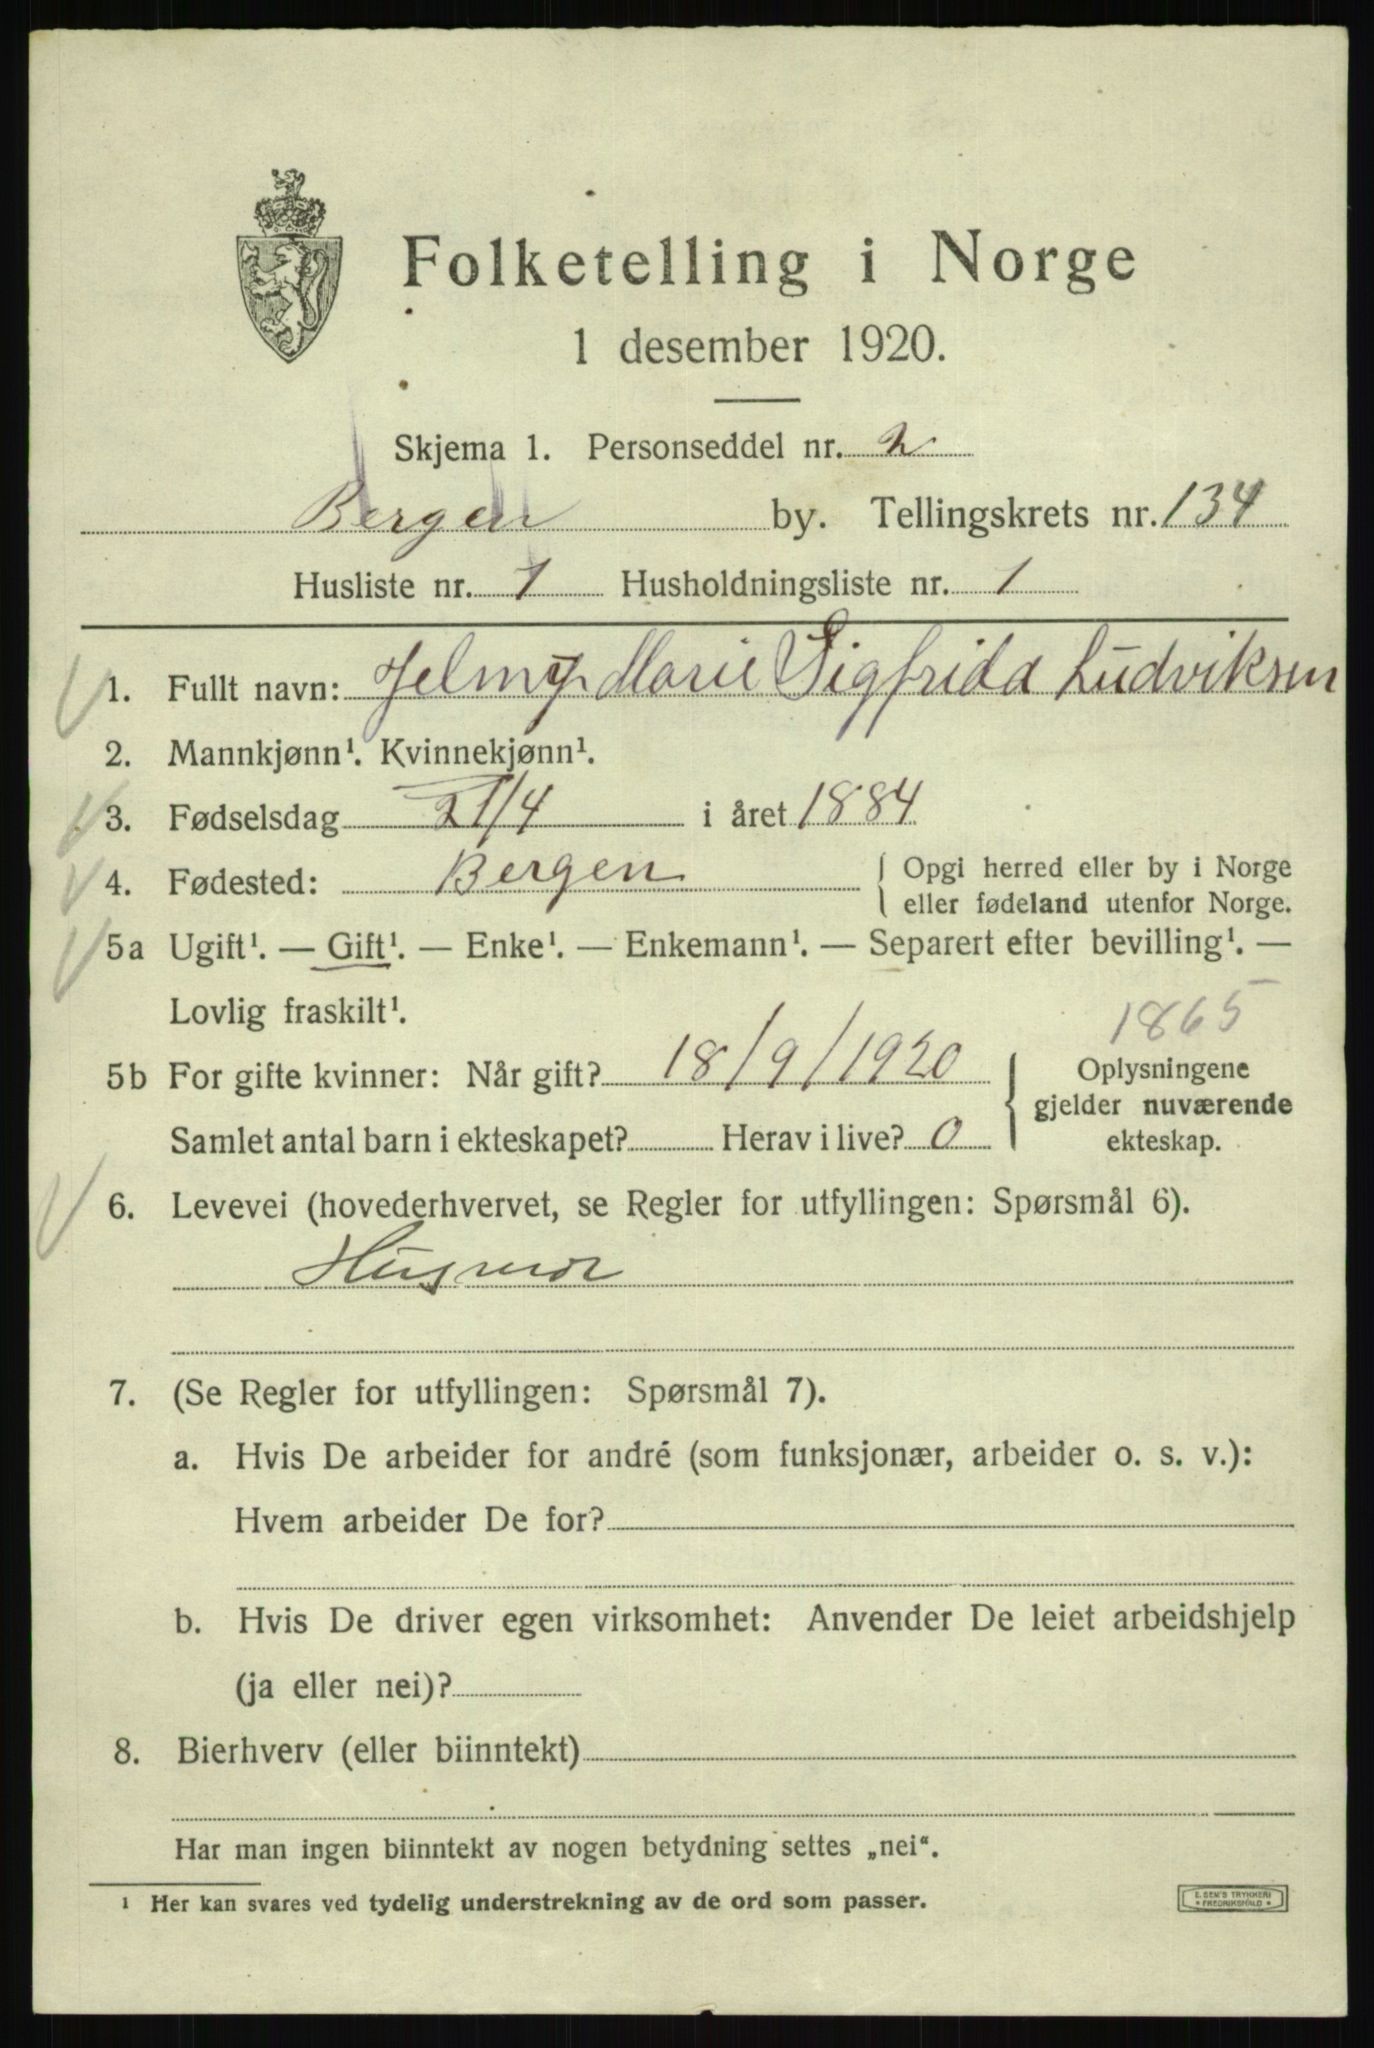 Folketelling i Norge
1 desember 1920.
Skjema 1. Personseddel nr. 2
Bergen by. Tellingskrets nr. 134
Husliste nr. 1 Husholdningsliste nr. 1
1. Fullt navn: Helmy Marie Sigfrida Ludviksen
2. Mannkjønn¹. Kvinnekjønn¹.
3. Fødselsdag 21/4 i året 1884
4. Fødested: Bergen { Opgi herred eller by i Norge
eller fødeland utenfor Norge.
5a Ugift¹. — Gift¹. — Enke¹. — Enkemann¹. — Separert efter bevilling¹. —
Lovlig fraskilt¹.
1865
5b For gifte kvinner: Når gift? 18/9/1920 { Oplysningene
gjelder nuværende
Samlet antal barn i ekteskapet? Herav i live? 0 ekteskap.
6. Levevei (hovederhvervet, se Regler for utfyllingen: Spørsmål 6).
Husmor
7. (Se Regler for utfyllingen: Spørsmål 7).
a. Hvis De arbeider for andré (som funksjonær, arbeider o. s. v.):
Hvem arbeider De for?
b. Hvis De driver egen virksomhet: Anvender De leiet arbeidshjelp
(ja eller nei)?
8. Bierhverv (eller biinntekt)
Har man ingen biinntekt av nogen betydning settes „nei“.
¹ Her kan svares ved tydelig understrekning av de ord som passer.
E. SEM'S TRYKKERI
* FREDRIKSHALD *